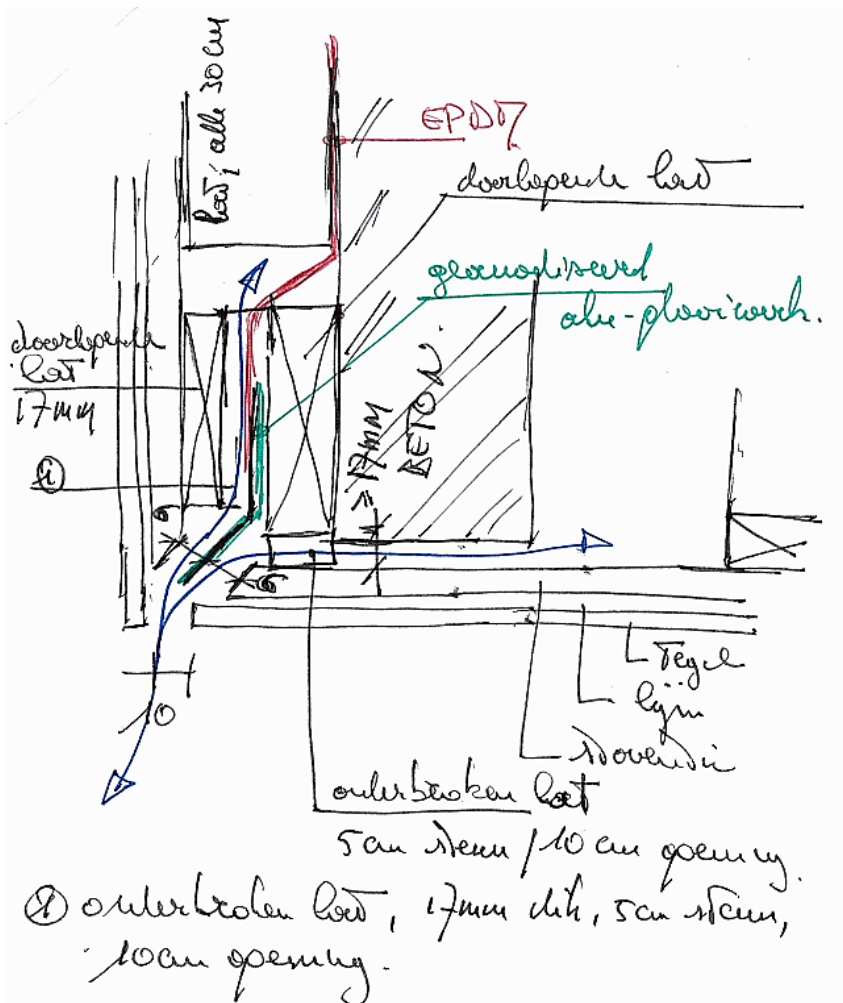 latjes alle 30 cm
EPDM
doorlopende lat
geanodiseerd
alu-plooiwerk.
doorlopende
lat
17mm
①
≥17mm
BETON
6
6
10
Tegel
lijm
stoventec
onderbroken lat
5 cm steun / 10 cm opening.
① onderbroken lat, 17mm dik, 5cm steun,
10cm opening.